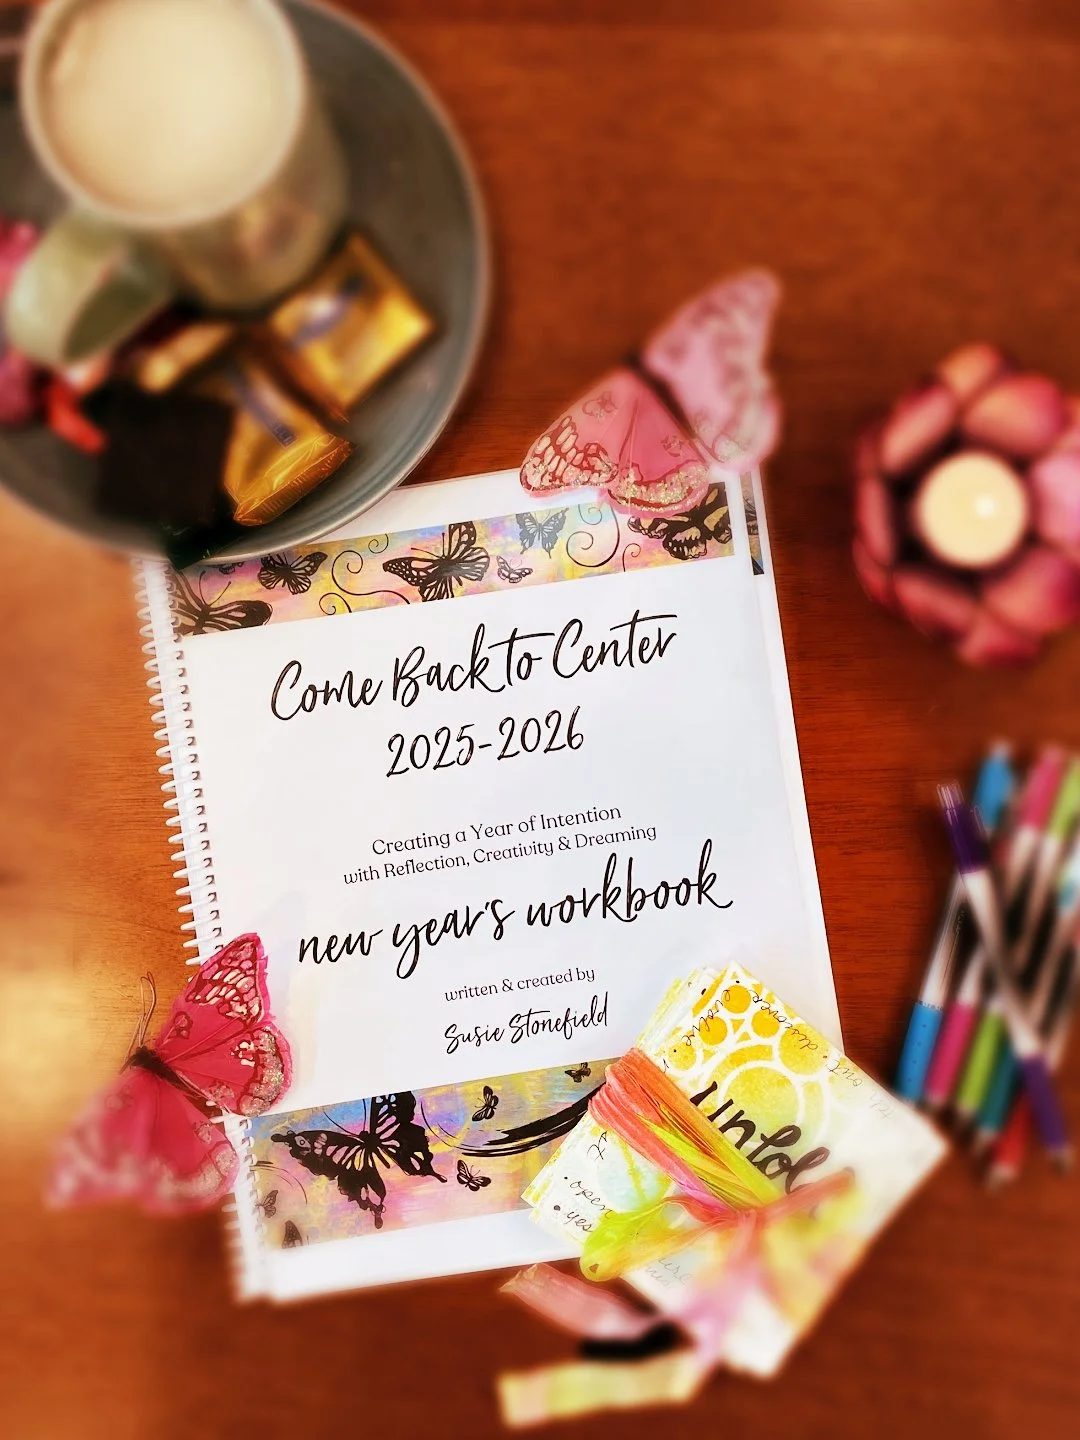 Come Back to Center
2025-2026
Creating a Year of Intention
with Reflection, Creativity & Dreaming
new year's workbook
written & created by
Susie Stonefield
evolve • discover
out
Unfold
• open
• yes